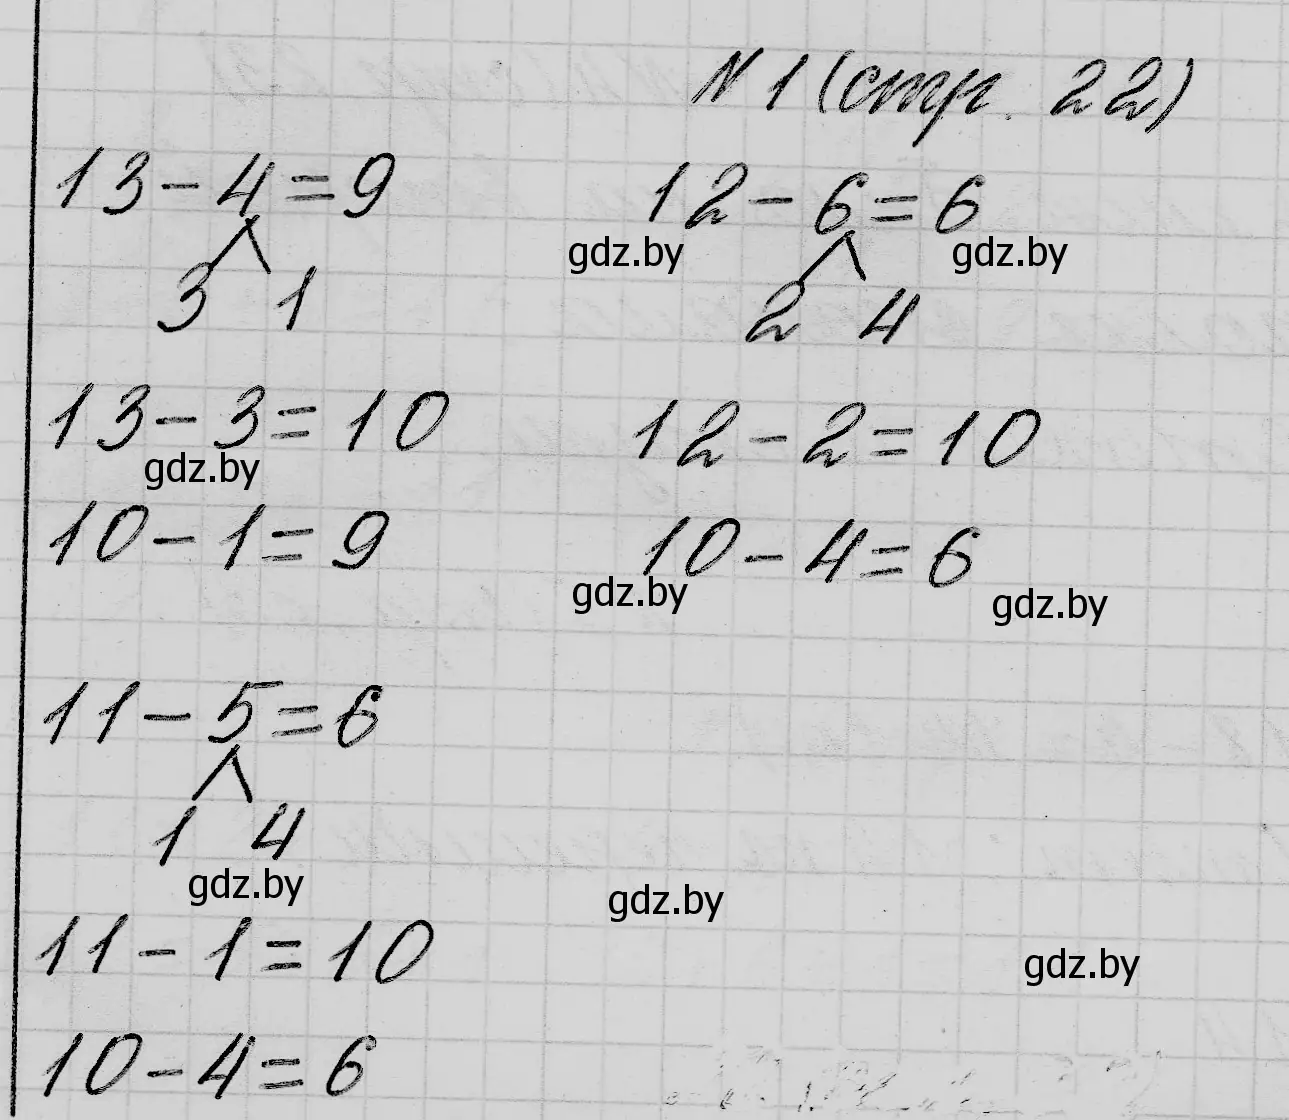 № 1 (стр. 22)
13 - 4 = 9
3 1
13 - 3 = 10
10 - 1 = 9
12 - 6 = 6
2 4
12 - 2 = 10
10 - 4 = 6
11 - 5 = 6
1 4
11 - 1 = 10
10 - 4 = 6
gdz.by
gdz.by
gdz.by
gdz.by
gdz.by
gdz.by
gdz.by
gdz.by